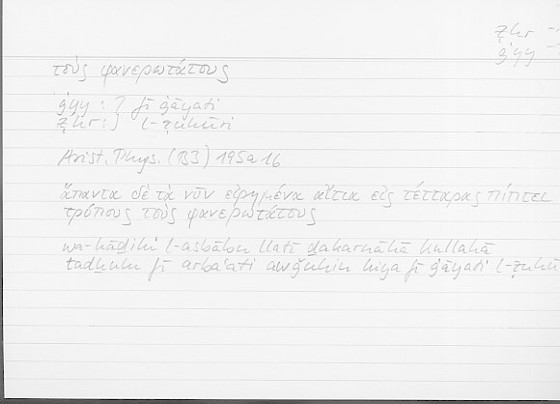 ẓhr
ġyy
τοὺς φανερωτάτους
ġyy : } fī ġāyati
ẓhr : } l-ẓuhūri
Arist. Phys. (B3) 195a16
ἅπαντα δὲ τὰ νῦν εἰρημένα αἴτια εἰς τέτταρας πίπτει
τρόπους τοὺς φανερωτάτους
wa-hāḏihī l-asbābu llatī ḏakarnāhā kullahā
tadḫulu fī arbaʿati awǧuhin hiya fī ġāyati l-ẓuhū